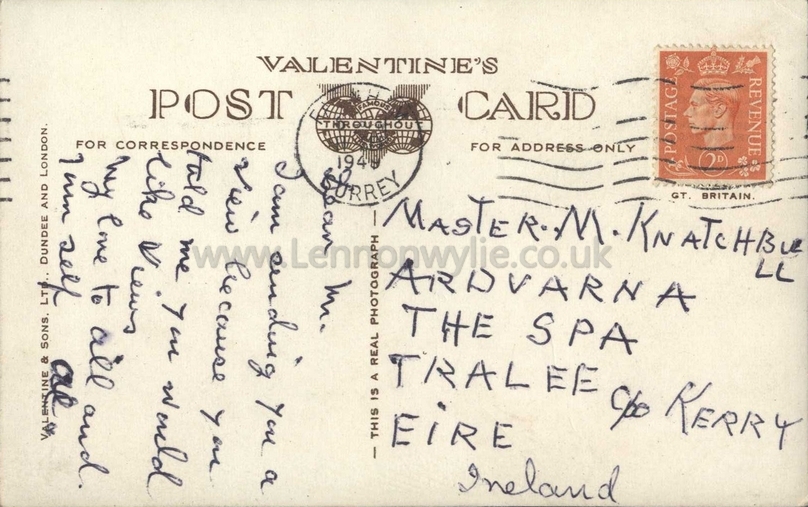 VALENTINE'S
POST CARD
FAMOUS
THROUGHOUT
FOR CORRESPONDENCE
FOR ADDRESS ONLY
SURREY
POSTAGE
REVENUE
2D
GT. BRITAIN.
VALENTINE & SONS, LTD., DUNDEE AND LONDON.
— THIS IS A REAL PHOTOGRAPH —
Dear M.
I am sending you a
view because you
told me you would
like views
My love to all and
MASTER. M. KNATCHBU
LL
ARDVARNA
THE SPA
TRALEE C/o KERRY
EIRE
Ireland
www.Lennonwylie.co.uk